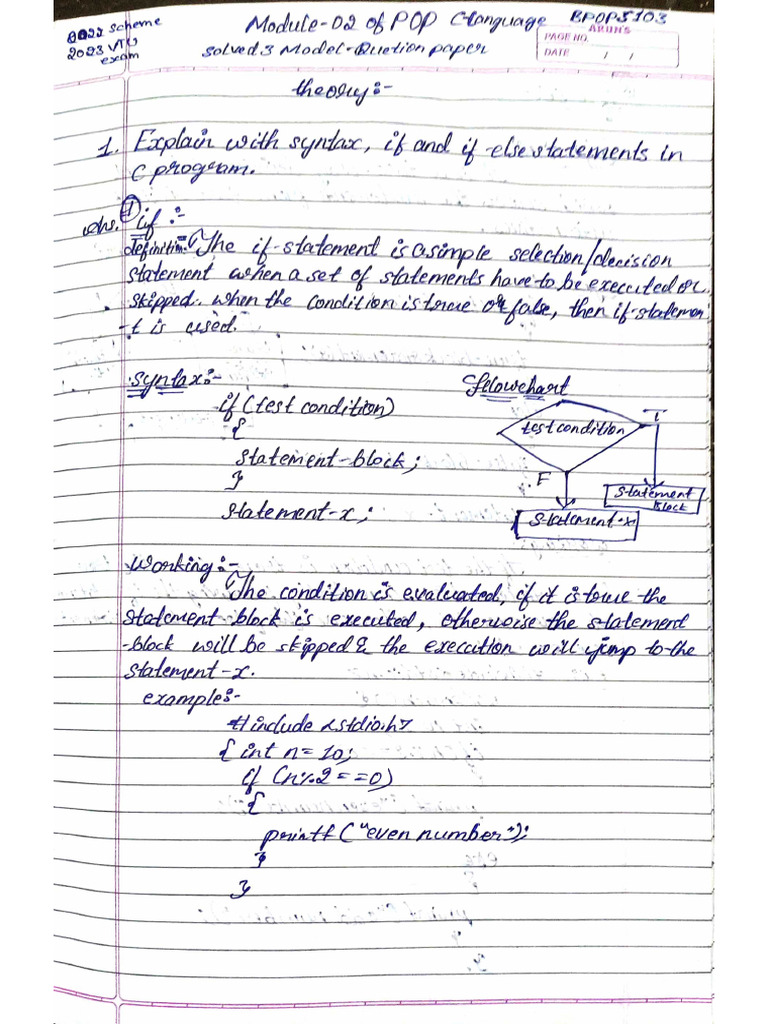 2022 scheme
2023 VTU
exam
Module-02 of POP C-language BPOPS103
ARUN'S
PAGE NO.
DATE / /
solved 3 Model-Quetion paper
theory:-
1. Explain with syntax, if and if else statements in
C program.
Ans. #1 if :-
definition:- The if-statement is a simple selection/decision
statement when a set of statements have to be executed or
skipped. when the condition is true or false, then if-statemen
-t is used.
syntax:-
if (test condition)
{
statement-block;
}
statement-x;
flowchart
test condition
T
F
statement
block
statement-x
working:-
The condition is evaluated, if it is true the
statement-block is executed, otherwise the statement
-block will be skipped & the execution will jump to the
statement-x.
example:-
#include <stdio.h>
{ int n=10;
if (n%2==0)
{
printf("even number");
}
}